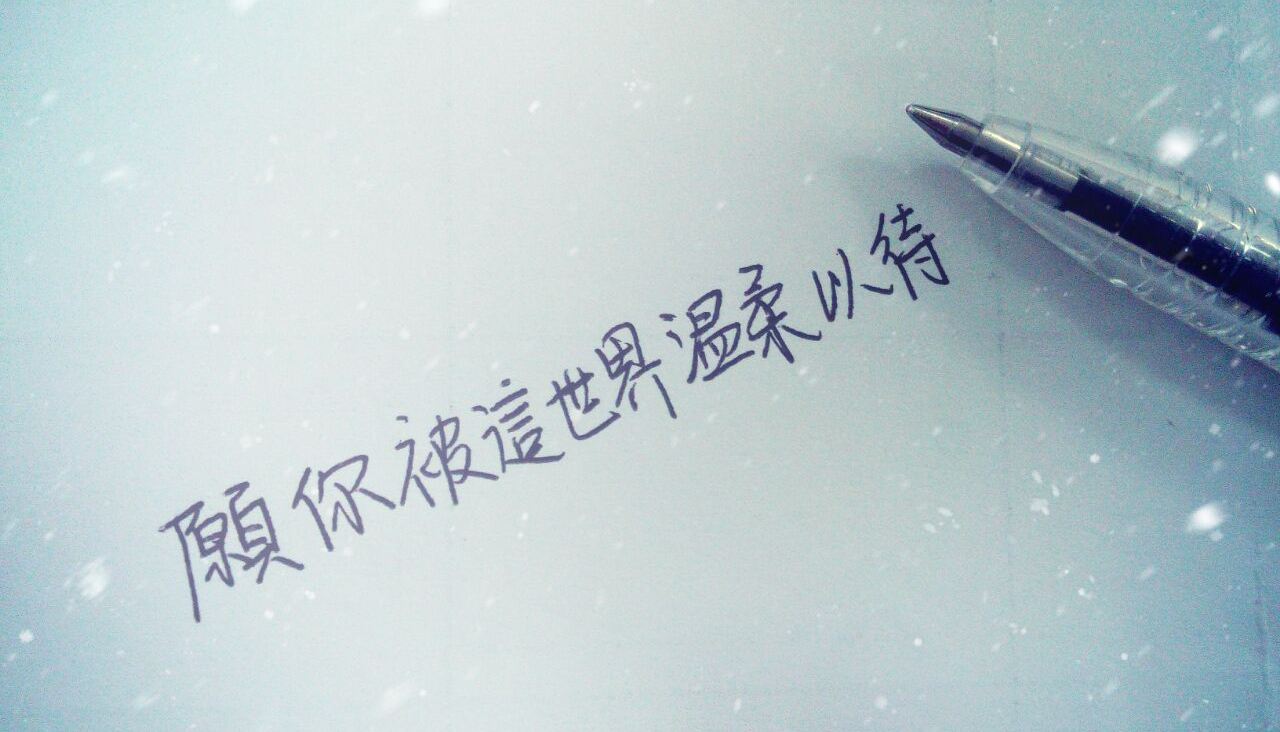 願你被這世界溫柔以待